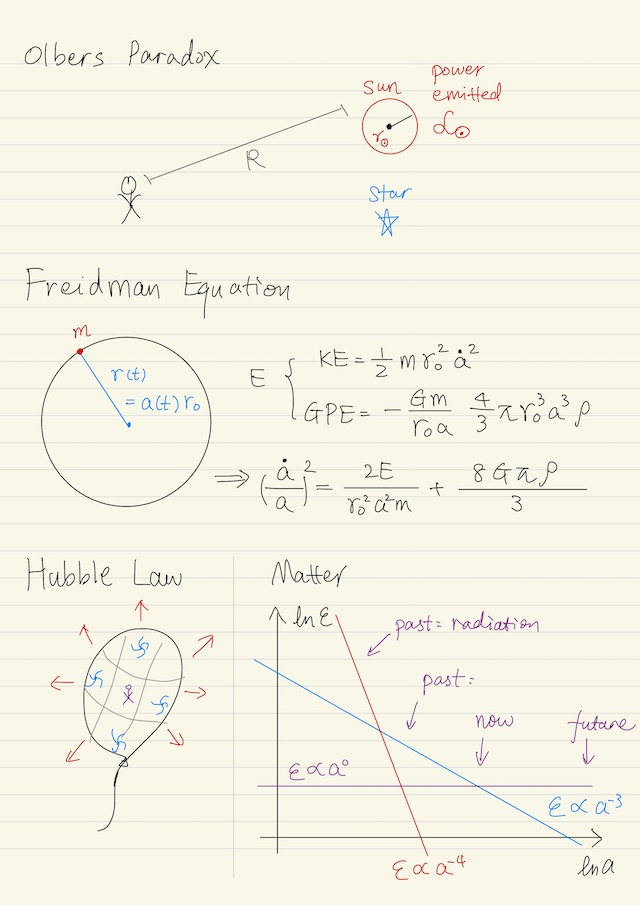 Olbers Paradox
Sun
power
emitted
r⊙
ℒ⊙
R
star
Freidman Equation
m
r(t)
= a(t) r₀
E { KE = 1/2 m r₀² ȧ²
GPE = - Gm/r₀a 4/3 π r₀³ a³ ρ
⇒ (ȧ/a)² = 2E/r₀²a²m + 8Gπρ/3
Hubble Law
Matter
ln ε
past: radiation
past:
now
future
ε ∝ a⁰
ε ∝ a⁻³
ε ∝ a⁻⁴
ln a